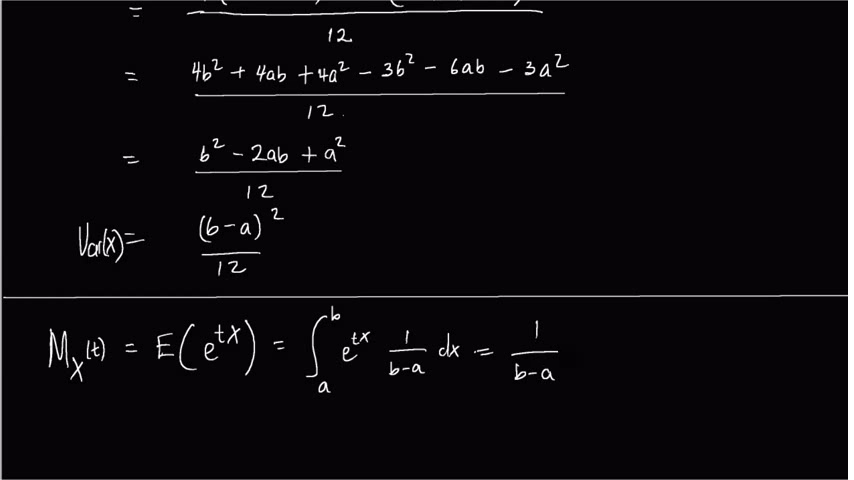 =
12
= 4b² + 4ab + 4a² - 3b² - 6ab - 3a²
12
= b² - 2ab + a²
12
Var(x) = (b-a)²
12
M_X(t) = E(e^{tX}) = ∫_a^b e^{tx} 1/(b-a) dx = 1/(b-a)